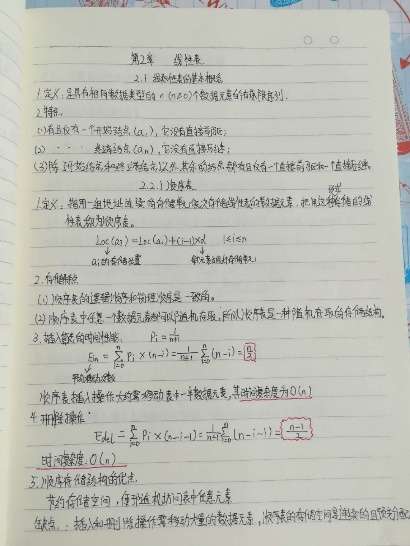 第2章 线性表
2.1 线性表的基本概念
1.定义：是具有相同数据类型的n(n≥0)个数据元素的有限序列.
2.特征
(1)有且仅有一个开始结点(a₁),它没有直接前驱;
(2) · · · 终端结点(an),它没有直接后继;
(3)除了开始结点和终端结点以外,其余的结点都有且仅有一个直接前驱和一个直接后继.
2.2.1 顺序表
1.定义：指用一组地址连续的存储单元依次存储线性表的数据元素,把用这种存储的线
性表称为顺序表.
Loc(ai)=Loc(a₁)+(i-1)×d 1≤i≤n
ai的存储位置 每个元素占用的存储单元
2.存储特点
(1)顺序表的逻辑顺序和物理顺序是一致的。
(2)顺序表中任意一个数据元素都可以随机存取,所以顺序表是一种随机存取的存储结构.
3.插入算法的时间性能: Pi=1/(n+1)
Ein=∑(i=0→n) Pi×(n-i)=1/(n+1) ∑(i=0→n)(n-i)=n/2
平均移动次数
顺序表插入操作大约需移动表中一半数据元素,其时间复杂度为O(n)
4.删除操作:
Edel=∑(i=0→n) Pi×(n-i-1)=1/(n+1) ∑(i=0→n)(n-i-1)=(n-1)/2
时间复杂度:O(n)
5.顺序存储结构的优点.
节约存储空间,便于随机访问表中任意元素
缺点:插入和删除操作需移动大量的数据元素,顺序表的存储空间是连续的且预先分配